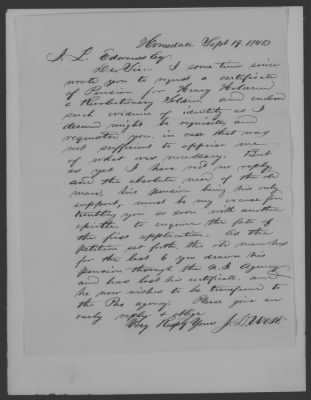 Honesdale Sept 19. 1840
J. L. Edwards Esq
Dr Sir - I some time since
wrote you to request a certificate
of Pension for Henry
a Revolutionary Soldier, and enclosed
such evidence of identity as I
deemed might be requisite, and
requested you, in case that was
not sufficient to apprise me
of what was necessary. But
as yet I have had no reply,
and the absolute need of the old
man, his pension being his only
support, must be my excuse for
troubling you so soon with another
epistle to enquire the fate of
the first application. As the
petition set forth, the old man has
for the last 6 yrs drawn his
pension through the Agency
and has lost his certificate, and
he now wishes to be transfered to
the Pa agency. Please give an
early reply & oblige
Very Respy Yours J.